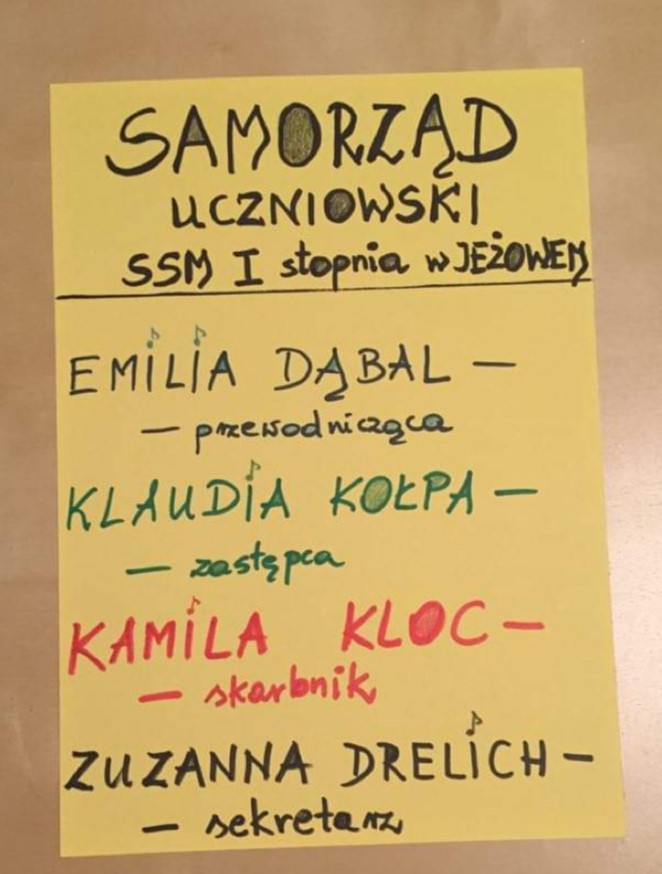 SAMORZĄD
UCZNIOWSKI
SSM I stopnia w JEŻOWEM
EMILIA DĄBAL —
— przewodnicząca
KLAUDIA KOŁPA —
— zastępca
KAMILA KLOC —
— skarbnik
ZUZANNA DRELICH —
— sekretarz